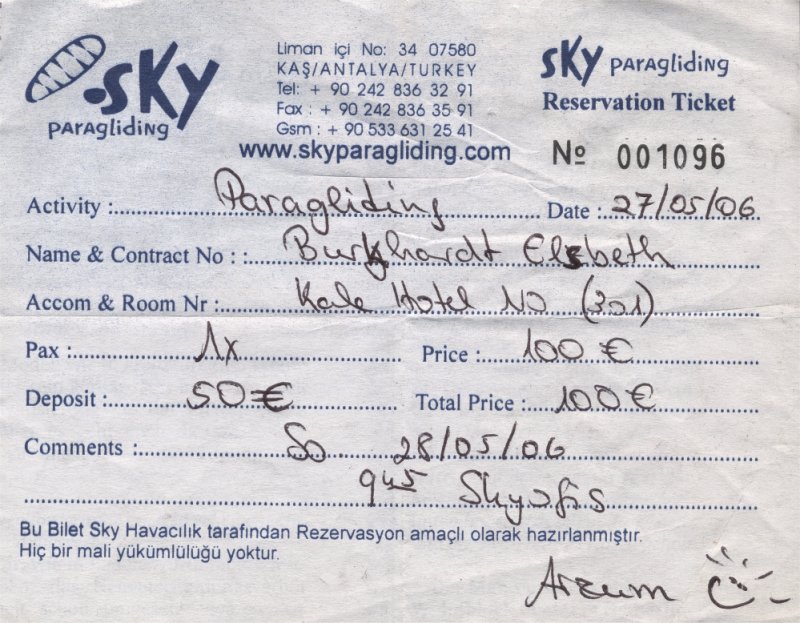 SKY
paragliding
Liman içi No: 34 07580
KAŞ/ANTALYA/TURKEY
Tel: + 90 242 836 32 91
Fax : + 90 242 836 35 91
Gsm : + 90 533 631 25 41
www.skyparagliding.com
SKY paragliding
Reservation Ticket
No 001096
Activity : Paragliding Date : 27/05/06
Name & Contract No : : Burkhardt Elsbeth
Accom & Room Nr : Kale Hotel No (301)
Pax : 1x Price : 100 €
Deposit : 50 € Total Price : 100 €
Comments : So 28/05/06
945 Skyofis
Bu Bilet Sky Havacılık tarafından Rezervasyon amaçlı olarak hazırlanmıştır.
Hiç bir mali yükümlülüğü yoktur.
Arzum